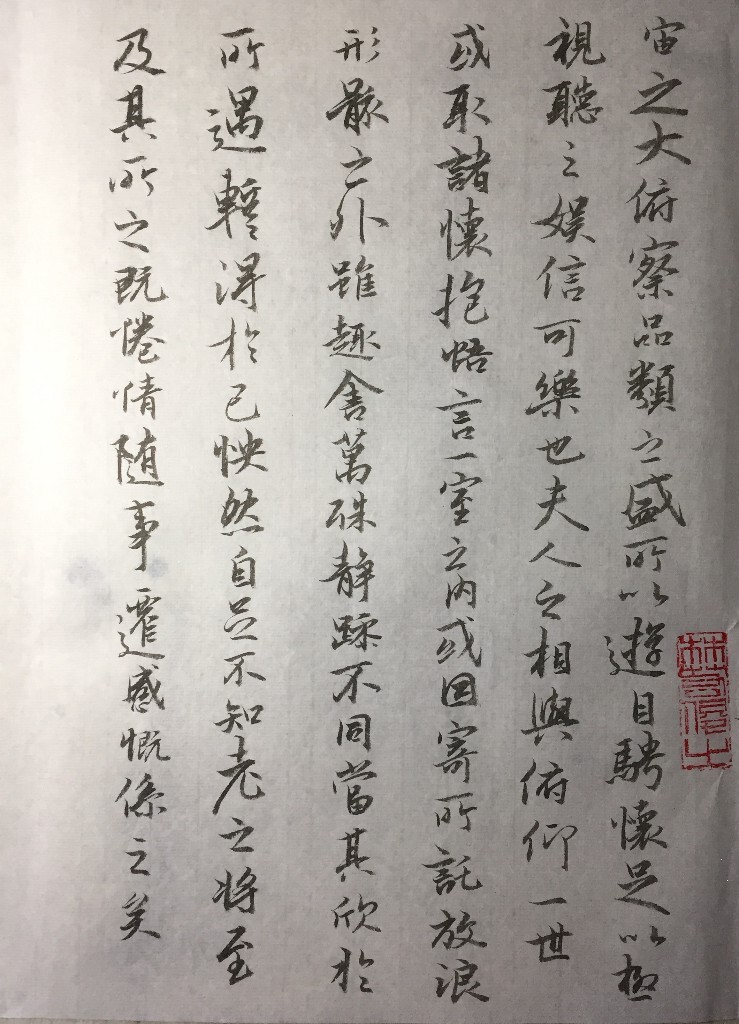 宙之大俯察品類之盛所以遊目騁懷足以極
視聽之娛信可樂也夫人之相與俯仰一世
或取諸懷抱悟言一室之內或因寄所託放浪
形骸之外雖趣舍萬殊静躁不同當其欣於
所遇暫得於己怏然自足不知老之将至
及其所之既惓情随事遷感慨係之矣